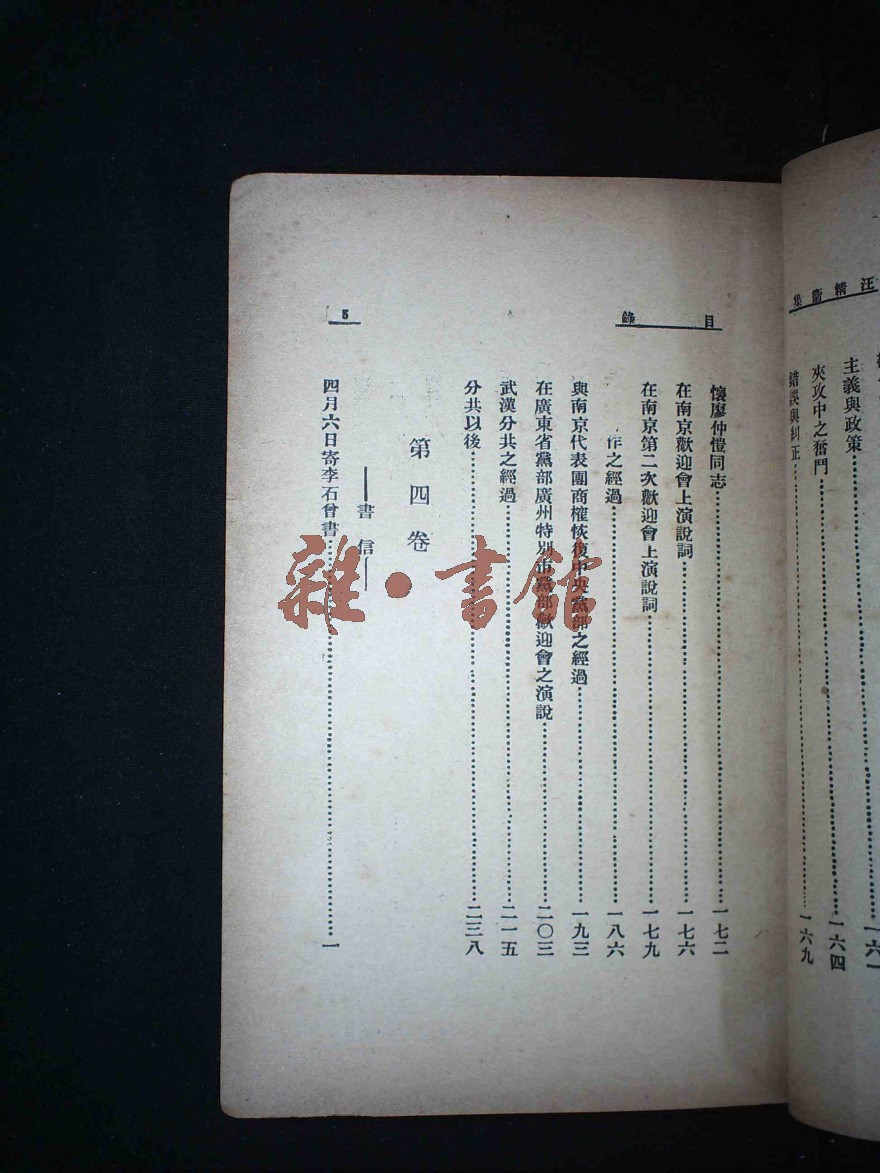 汪精衞集
主義與政策……一六一
夾攻中之奮鬥……一六四
錯誤與糾正……一六九
目錄
5
懷廖仲愷同志……一七二
在南京歡迎會上演說詞……一七六
在南京第二次歡迎會上演說詞……一七九
作之經過……一八六
與南京代表團商榷恢復中央黨部之經過……一九三
在廣東省黨部廣州特別市黨部歡迎會之演說……二〇三
武漢分共之經過……二一五
分共以後……二三八
第四卷
——書信——
四月六日寄李石曾書……一
雜·書館